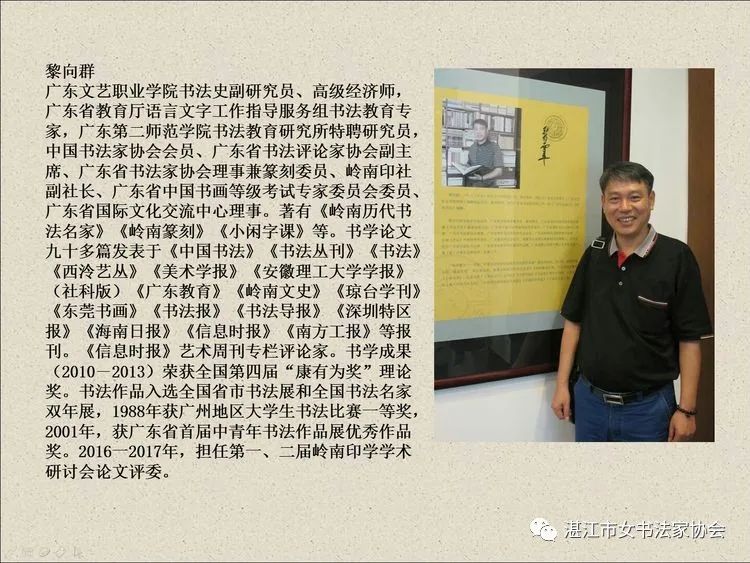 黎向群
广东文艺职业学院书法史副研究员、高级经济师，
广东省教育厅语言文字工作指导服务组书法教育专
家，广东第二师范学院书法教育研究所特聘研究员，
中国书法家协会会员、广东省书法评论家协会副主
席、广东省书法家协会理事兼篆刻委员、岭南印社
副社长、广东省中国书画等级考试专家委员会委员、
广东省国际文化交流中心理事。著有《岭南历代书
法名家》《岭南篆刻》《小闲字课》等。书学论文
九十多篇发表于《中国书法》《书法丛刊》《书法》
《西泠艺丛》《美术学报》《安徽理工大学学报》
（社科版）《广东教育》《岭南文史》《琼台学刊》
《东莞书画》《书法报》《书法导报》《深圳特区
报》《海南日报》《信息时报》《南方工报》等报
刊。《信息时报》艺术周刊专栏评论家。书学成果
（2010－2013）荣获全国第四届“康有为奖”理论
奖。书法作品入选全国省市书法展和全国书法名家
双年展，1988年获广州地区大学生书法比赛一等奖，
2001年，获广东省首届中青年书法作品展优秀作品
奖。2016—2017年，担任第一、二届岭南印学学术
研讨会论文评委。
湛江市女书法家协会